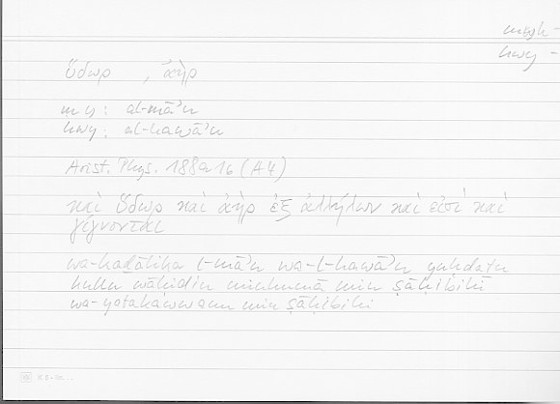 mwh -
hwy -
ὕδωρ , ἀήρ
mwh: al-māʾu
hwy: al-hawāʾu
Arist. Phys. 188a16 (A4)
καὶ ὕδωρ καὶ ἀὴρ ἐξ ἀλλήλων καὶ εἰσὶ καὶ
γίγνονται
wa-kaḏālika l-māʾu wa-l-hawāʾu yaḥdaṯu
kullu wāḥidin minhumā min ṣāḥibihī
wa-yatakawwanu min ṣāḥibihī